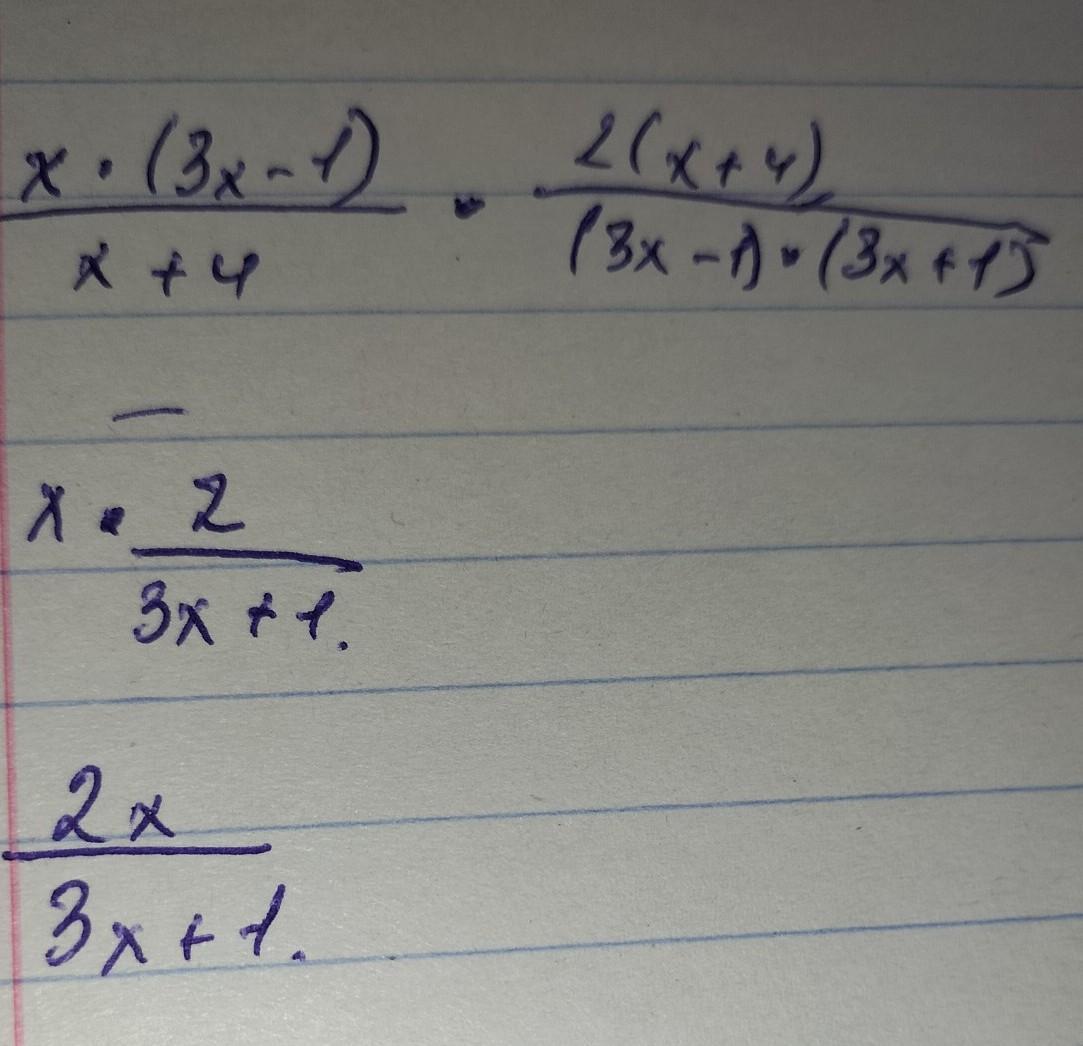 x · (3x - 1) / x + 4 · 2(x + 4) / (3x - 1) · (3x + 1)
x · 2 / 3x + 1.
2x / 3x + 1.